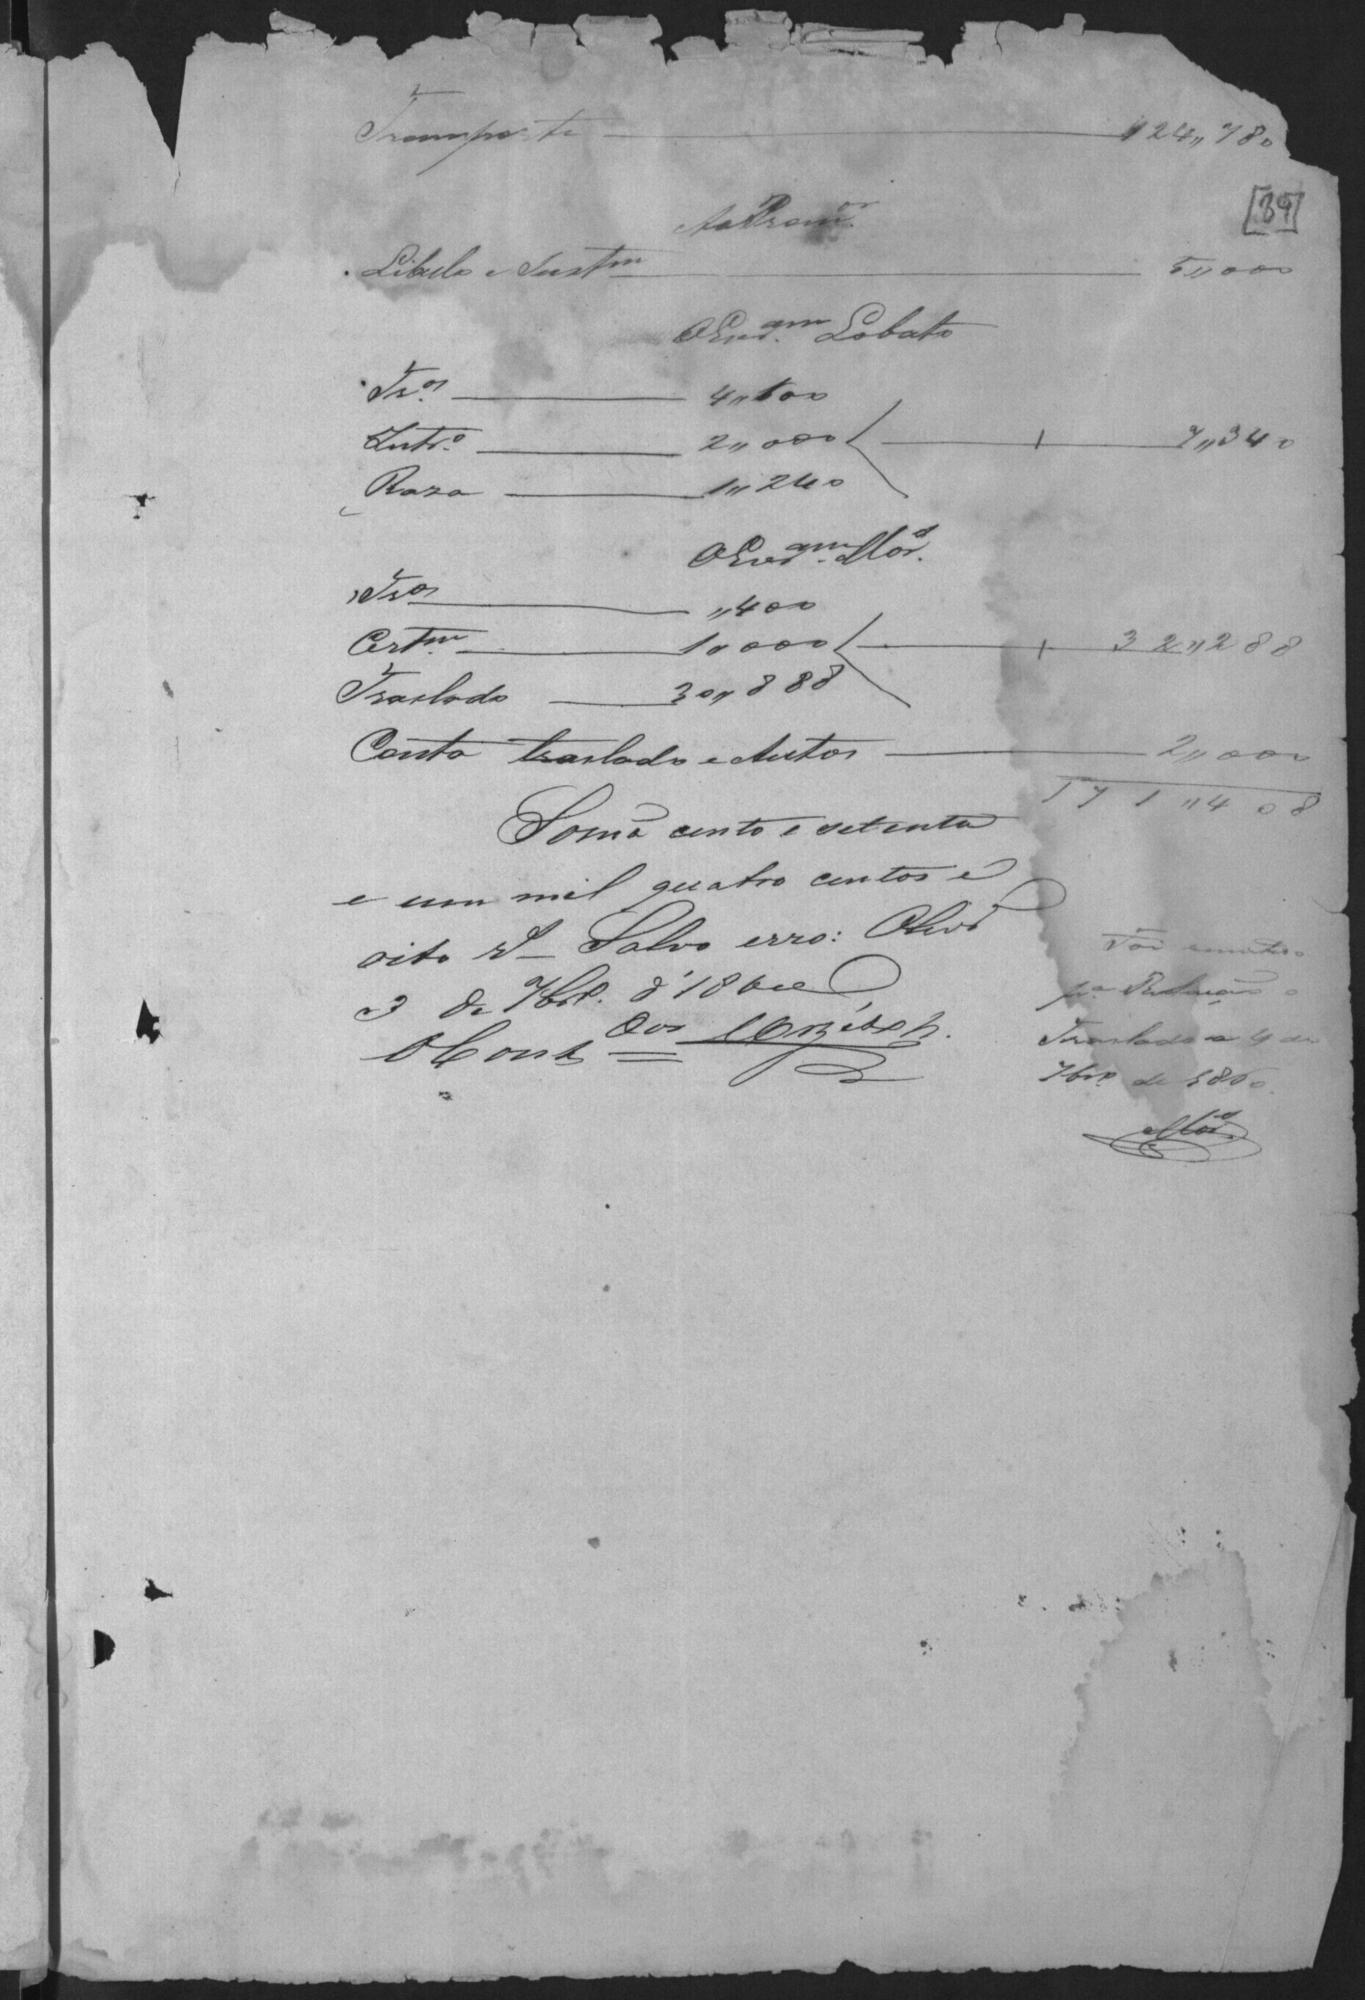 Transporte 124,,780
[39]
Ao Prom.or
Libelo e Sust.m 5,,000
O Escr.am Lobato
Tr.os 4,,100
Intr.o 2,,000 7,,340
Raza 1,,240
O Escr.am Mor.a
Tr.os ,,400
Cert.m 1,,000 32,,288
Traslado 30,,888
Conta traslado e Autos 2,,000
171,,408
Soma cento e setenta
e um mil quatro centos e
oito rs Salvo erro:
3 de 7br.o d'186
O Cont.
Foi
p.a o
Traslado a 4 de
7br.o de 1860.
Mor.a